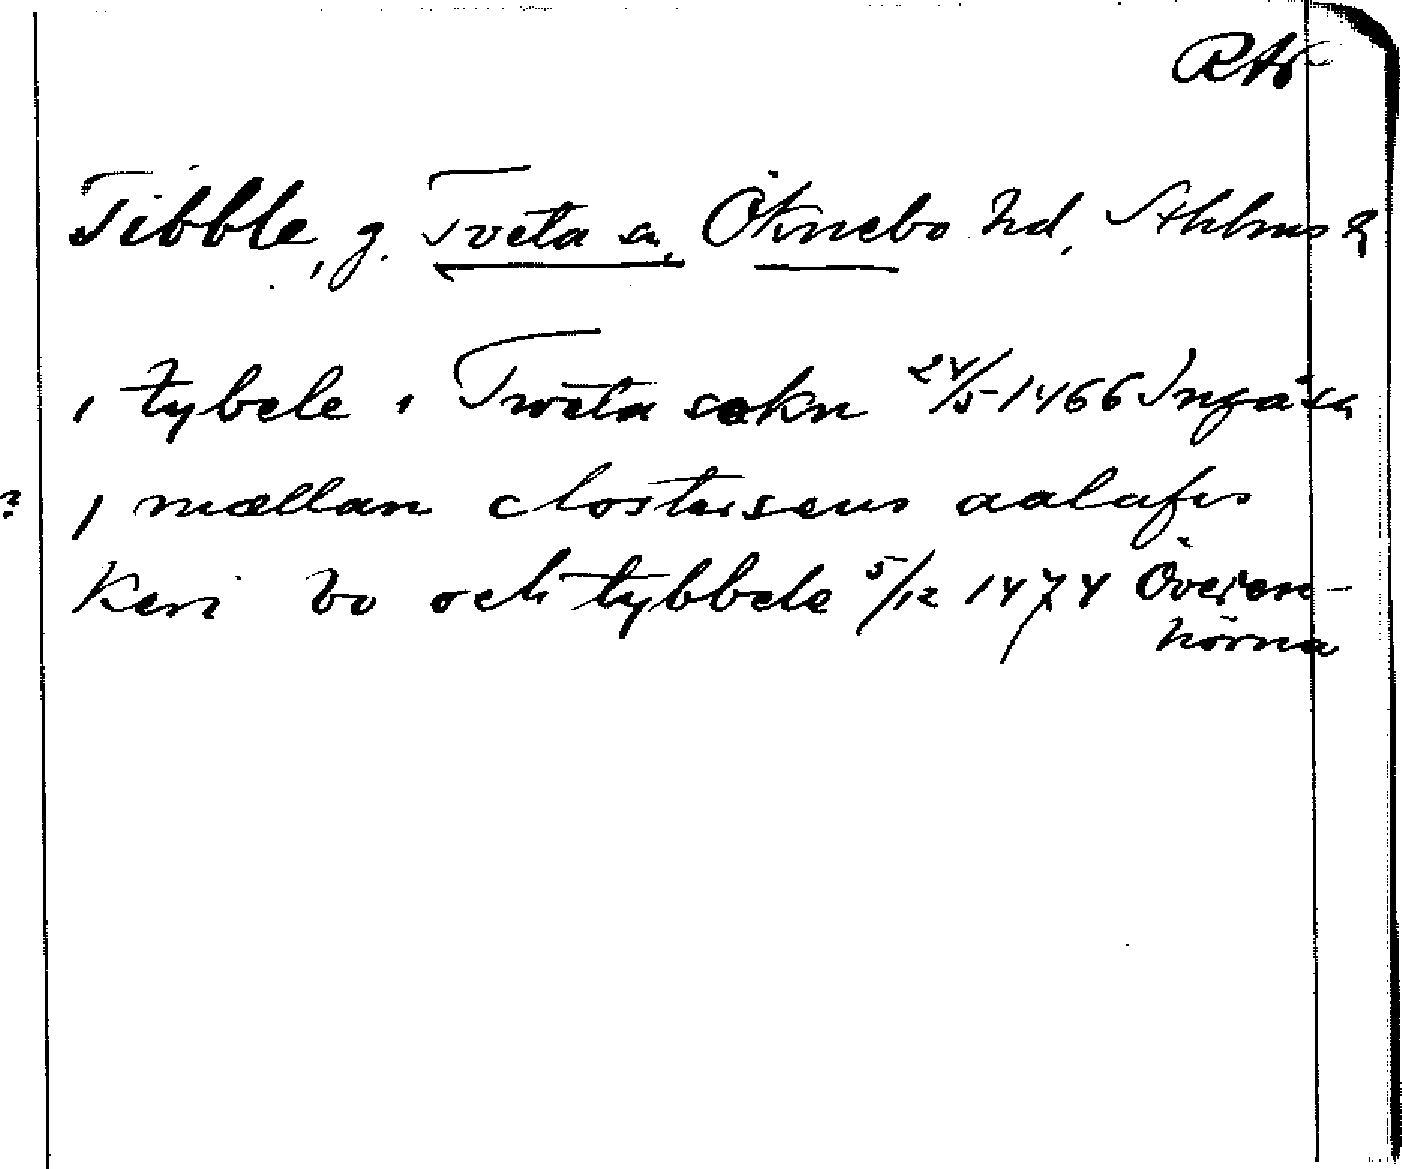 RA
Tibble, g. Tveta sn, Öknebo hd, Sthlms l.
i tybele i Tweta sokn 24/5 1466 Ingå sn
? i mællan clostersens aalafis
Keri bo och tybbele 5/12 1474 Överen-
hörna